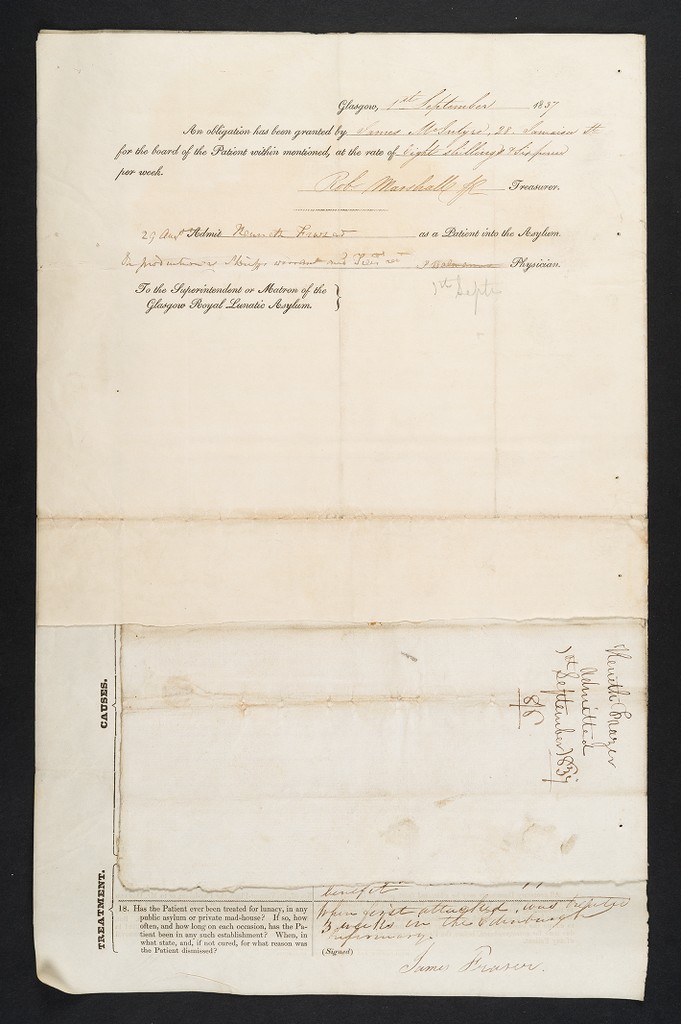 Glasgow, 1st September 1837
An obligation has been granted by James McIntyre, 28 Jamaica St
for the board of the Patient within mentioned, at the rate of Eight Shillings & Sixpence
per week.
Rob Marshall Treasurer.
29 Augt Admit as a Patient into the Asylum.
On production warrant and Physician.
1st Septr
To the Superintendent or Matron of the
Glasgow Royal Lunatic Asylum.
CAUSES.
Admitted
1st September 1837
8/6
TREATMENT.
benefit
18. Has the Patient ever been treated for lunacy, in any
public asylum or private mad-house? If so, how
often, and how long on each occasion, has the Pa-
tient been in any such establishment? When, in
what state, and, if not cured, for what reason was
the Patient dismissed?
When first attacked, was treated
3 weeks in the Edinburgh
infirmary.
(Signed)
James Fraser.